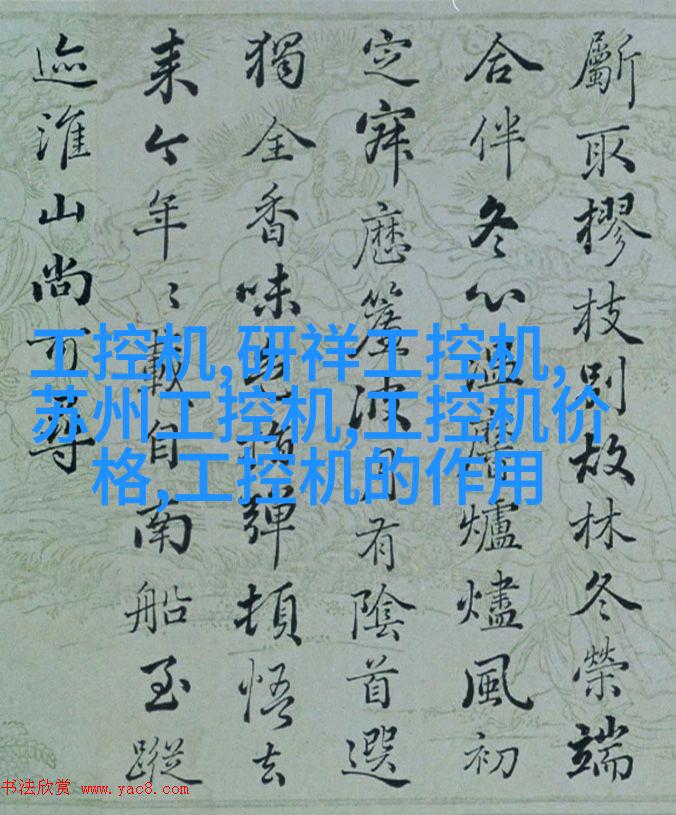 斸取樛枝別故林冬榮端
合伴冬心温黁爐燼風初
定寐歷簾波月有陰首選
獨全香味色指彈頓悟去
来今年〻載自南船至蹤
迹淮山尚可尋
工控机,研祥工控机,
苏州工控机,工控机价
格,工控机的作用
书法欣赏 www.yac8.com